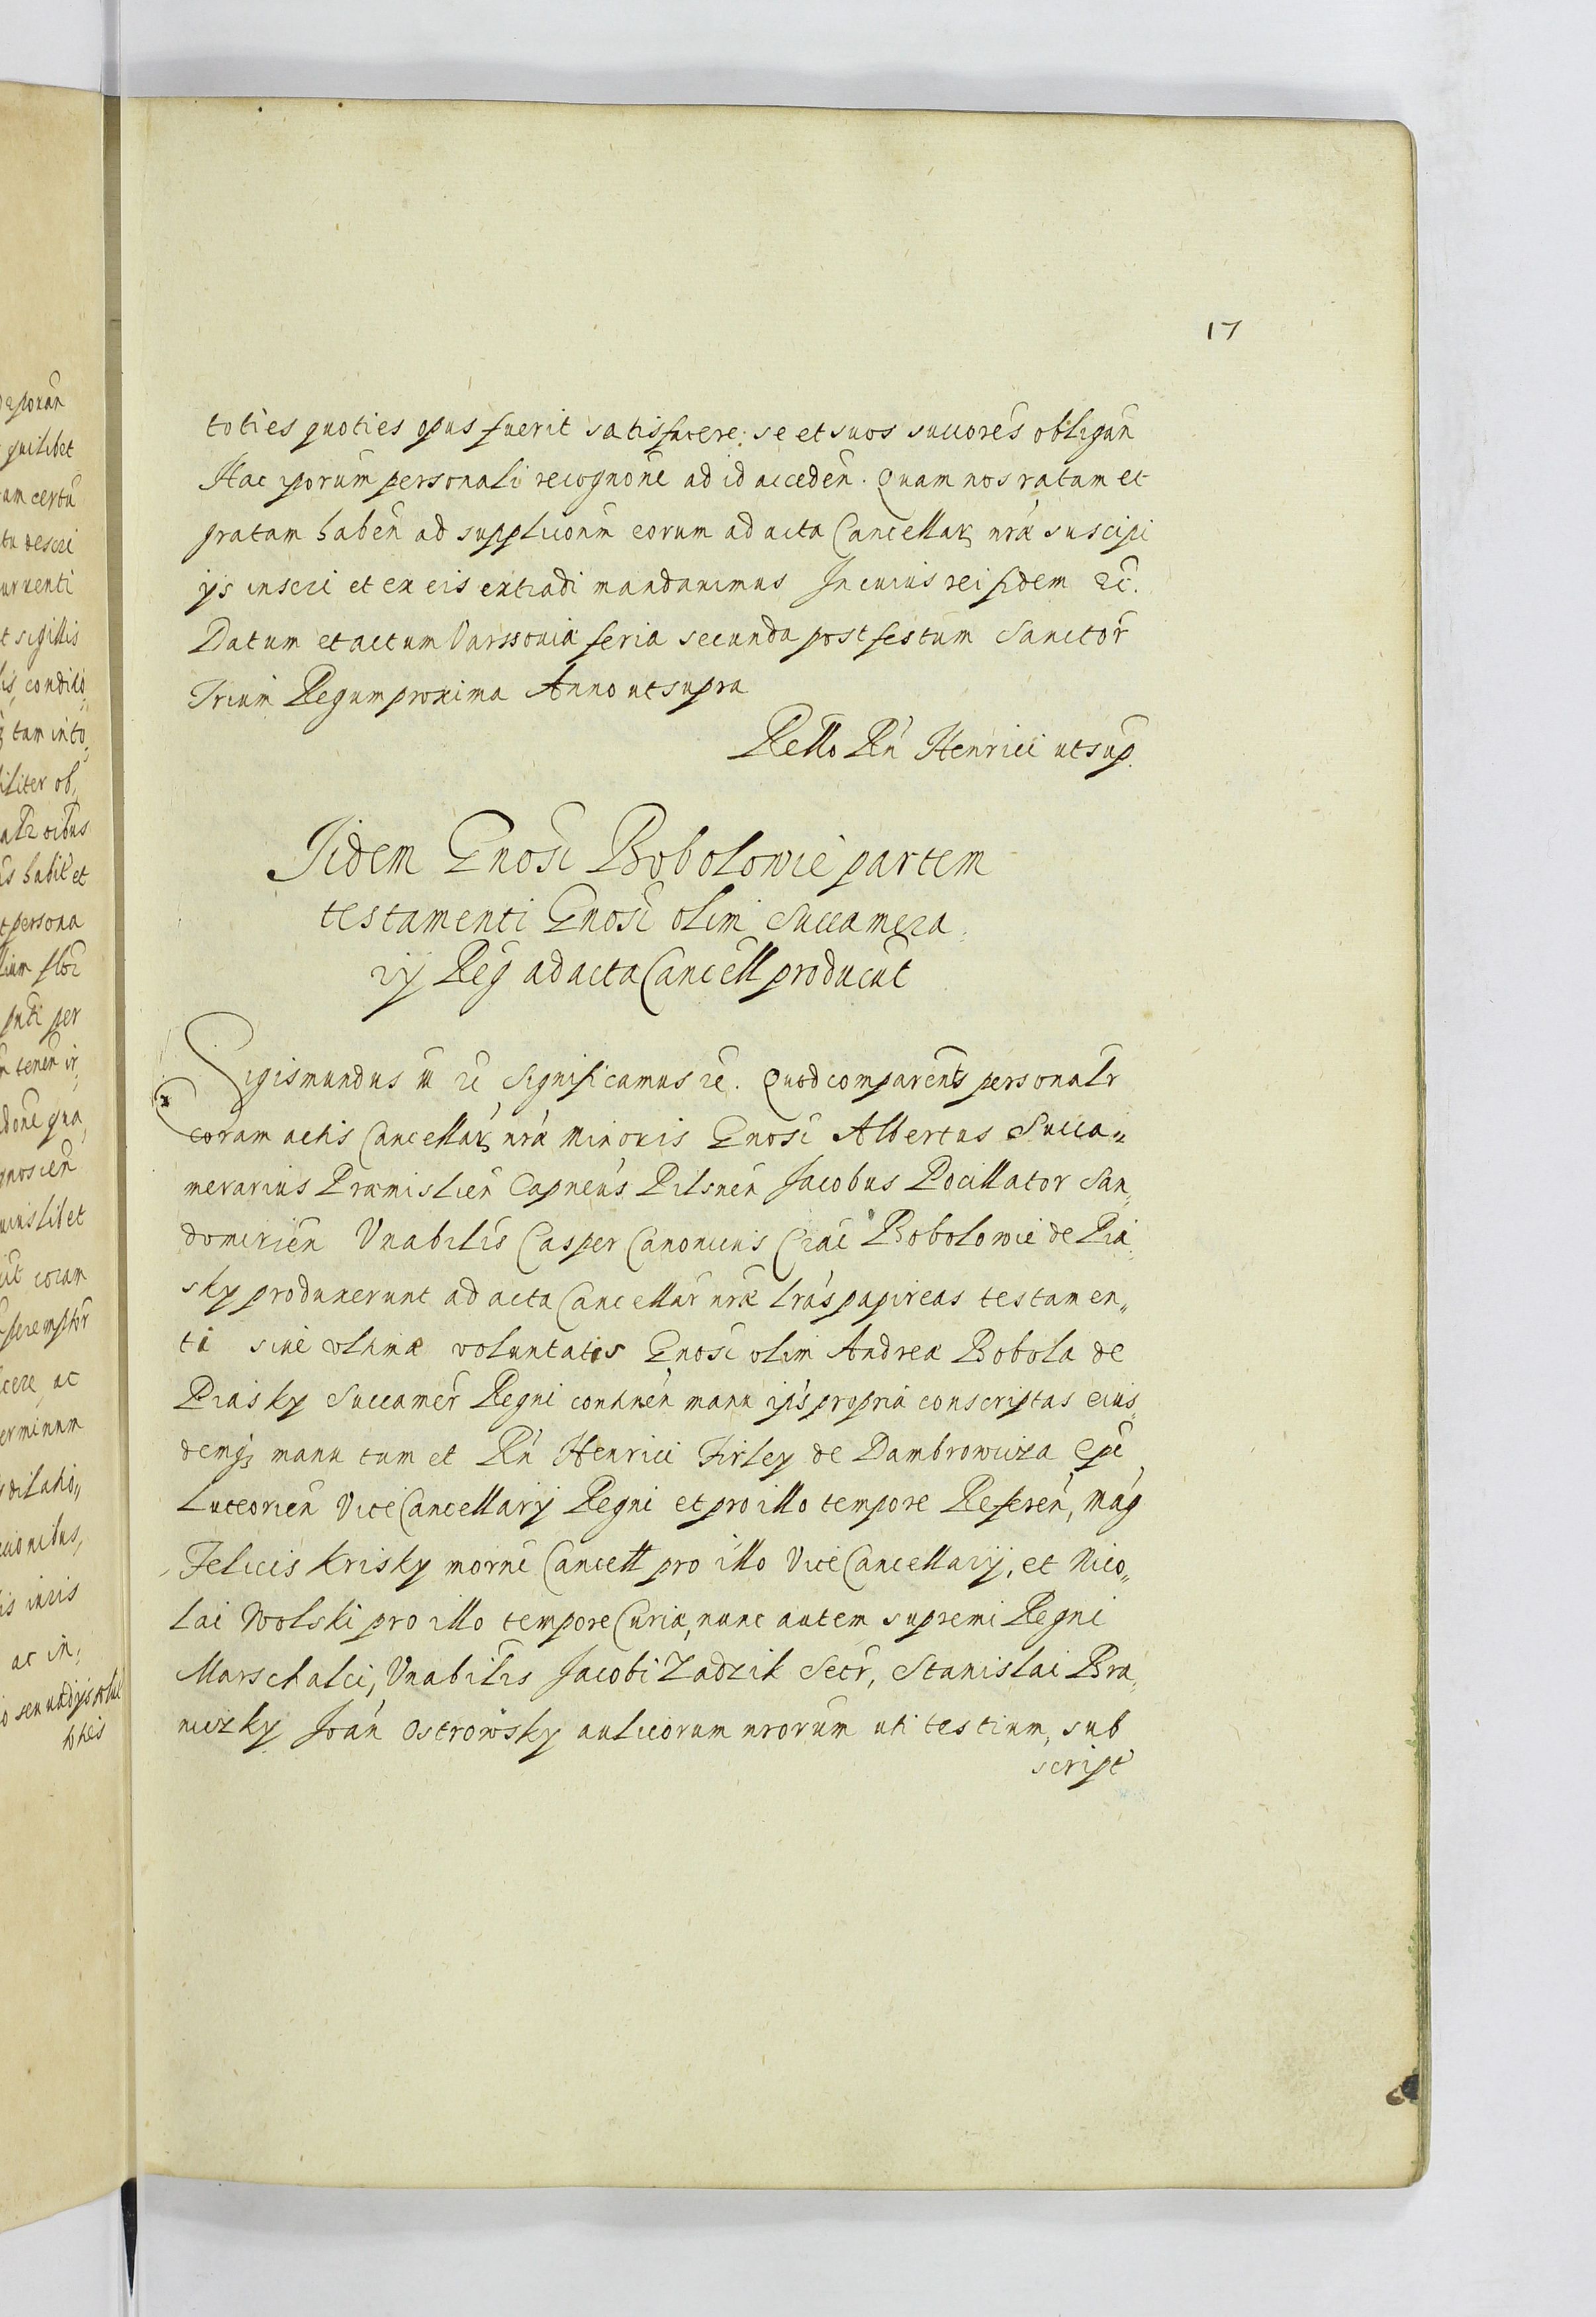 17
toties quoties opus fuerit satisfacere: se et suos succores obligan̄
Hac yporum personali recognone ad id acceden̄. Quam nos ratam et
gratam haben̄ ad supplicionm eorum ad acta Cancellar nræ suscipi
ijs inseri et ex eis extradi mandavimus In cuius rei fidem etc.
Datum et actum Varssoviæ feria secunda post festum Sanctor
Trium Regum proxima Anno ut supra
Rello Rn̄ Henrici ut sup.
Iidem Gnosi Bobolowie partem
testamenti Gnosi olim Succamera„
rij Reg ad acta Cancell producūt
Sigismundus III etc Significamus etc. Quod comparents personalr
coram actis Cancellar nræ Minoris Gnosi Albertus Succa„
merarius Præmislien̄ Capneus Pilsnen̄ Jacobus Pocillator San„
domirien̄ Vnabilis Casper Canonicus Crac Bobolowie de Pia„
sky produxerunt ad acta Cancellar nræ lras papireas testamen„
ti sive vltimæ voluntatis Gnosi olim Andreæ Bobola de
Piasky Succamer Regni continen̄ manu ips propria conscriptas eius„
demq; manu tum et Rn̄ Henrici Firley de Dambrowicza Epi
Luceorien̄ ViceCancellarij Regni et pro illo tempore Referen̄, Mag
Felicis Krisky morne Cancell pro illo ViceCancellarij, et Nico„
lai Wolski pro illo tempore Curiæ, nunc autem supremi Regni
Marschalci, Vnabilis Jacobi Zadzik Secr, Stanislai Bra„
niczky Joan̄ Ostrowsky aulicorum nrorum uti testium, sub
script
quilibet
am certū
et sigillis
tam into„
iliter ob„
s habit et
persona
per
cere, ac
erminum
ac in„